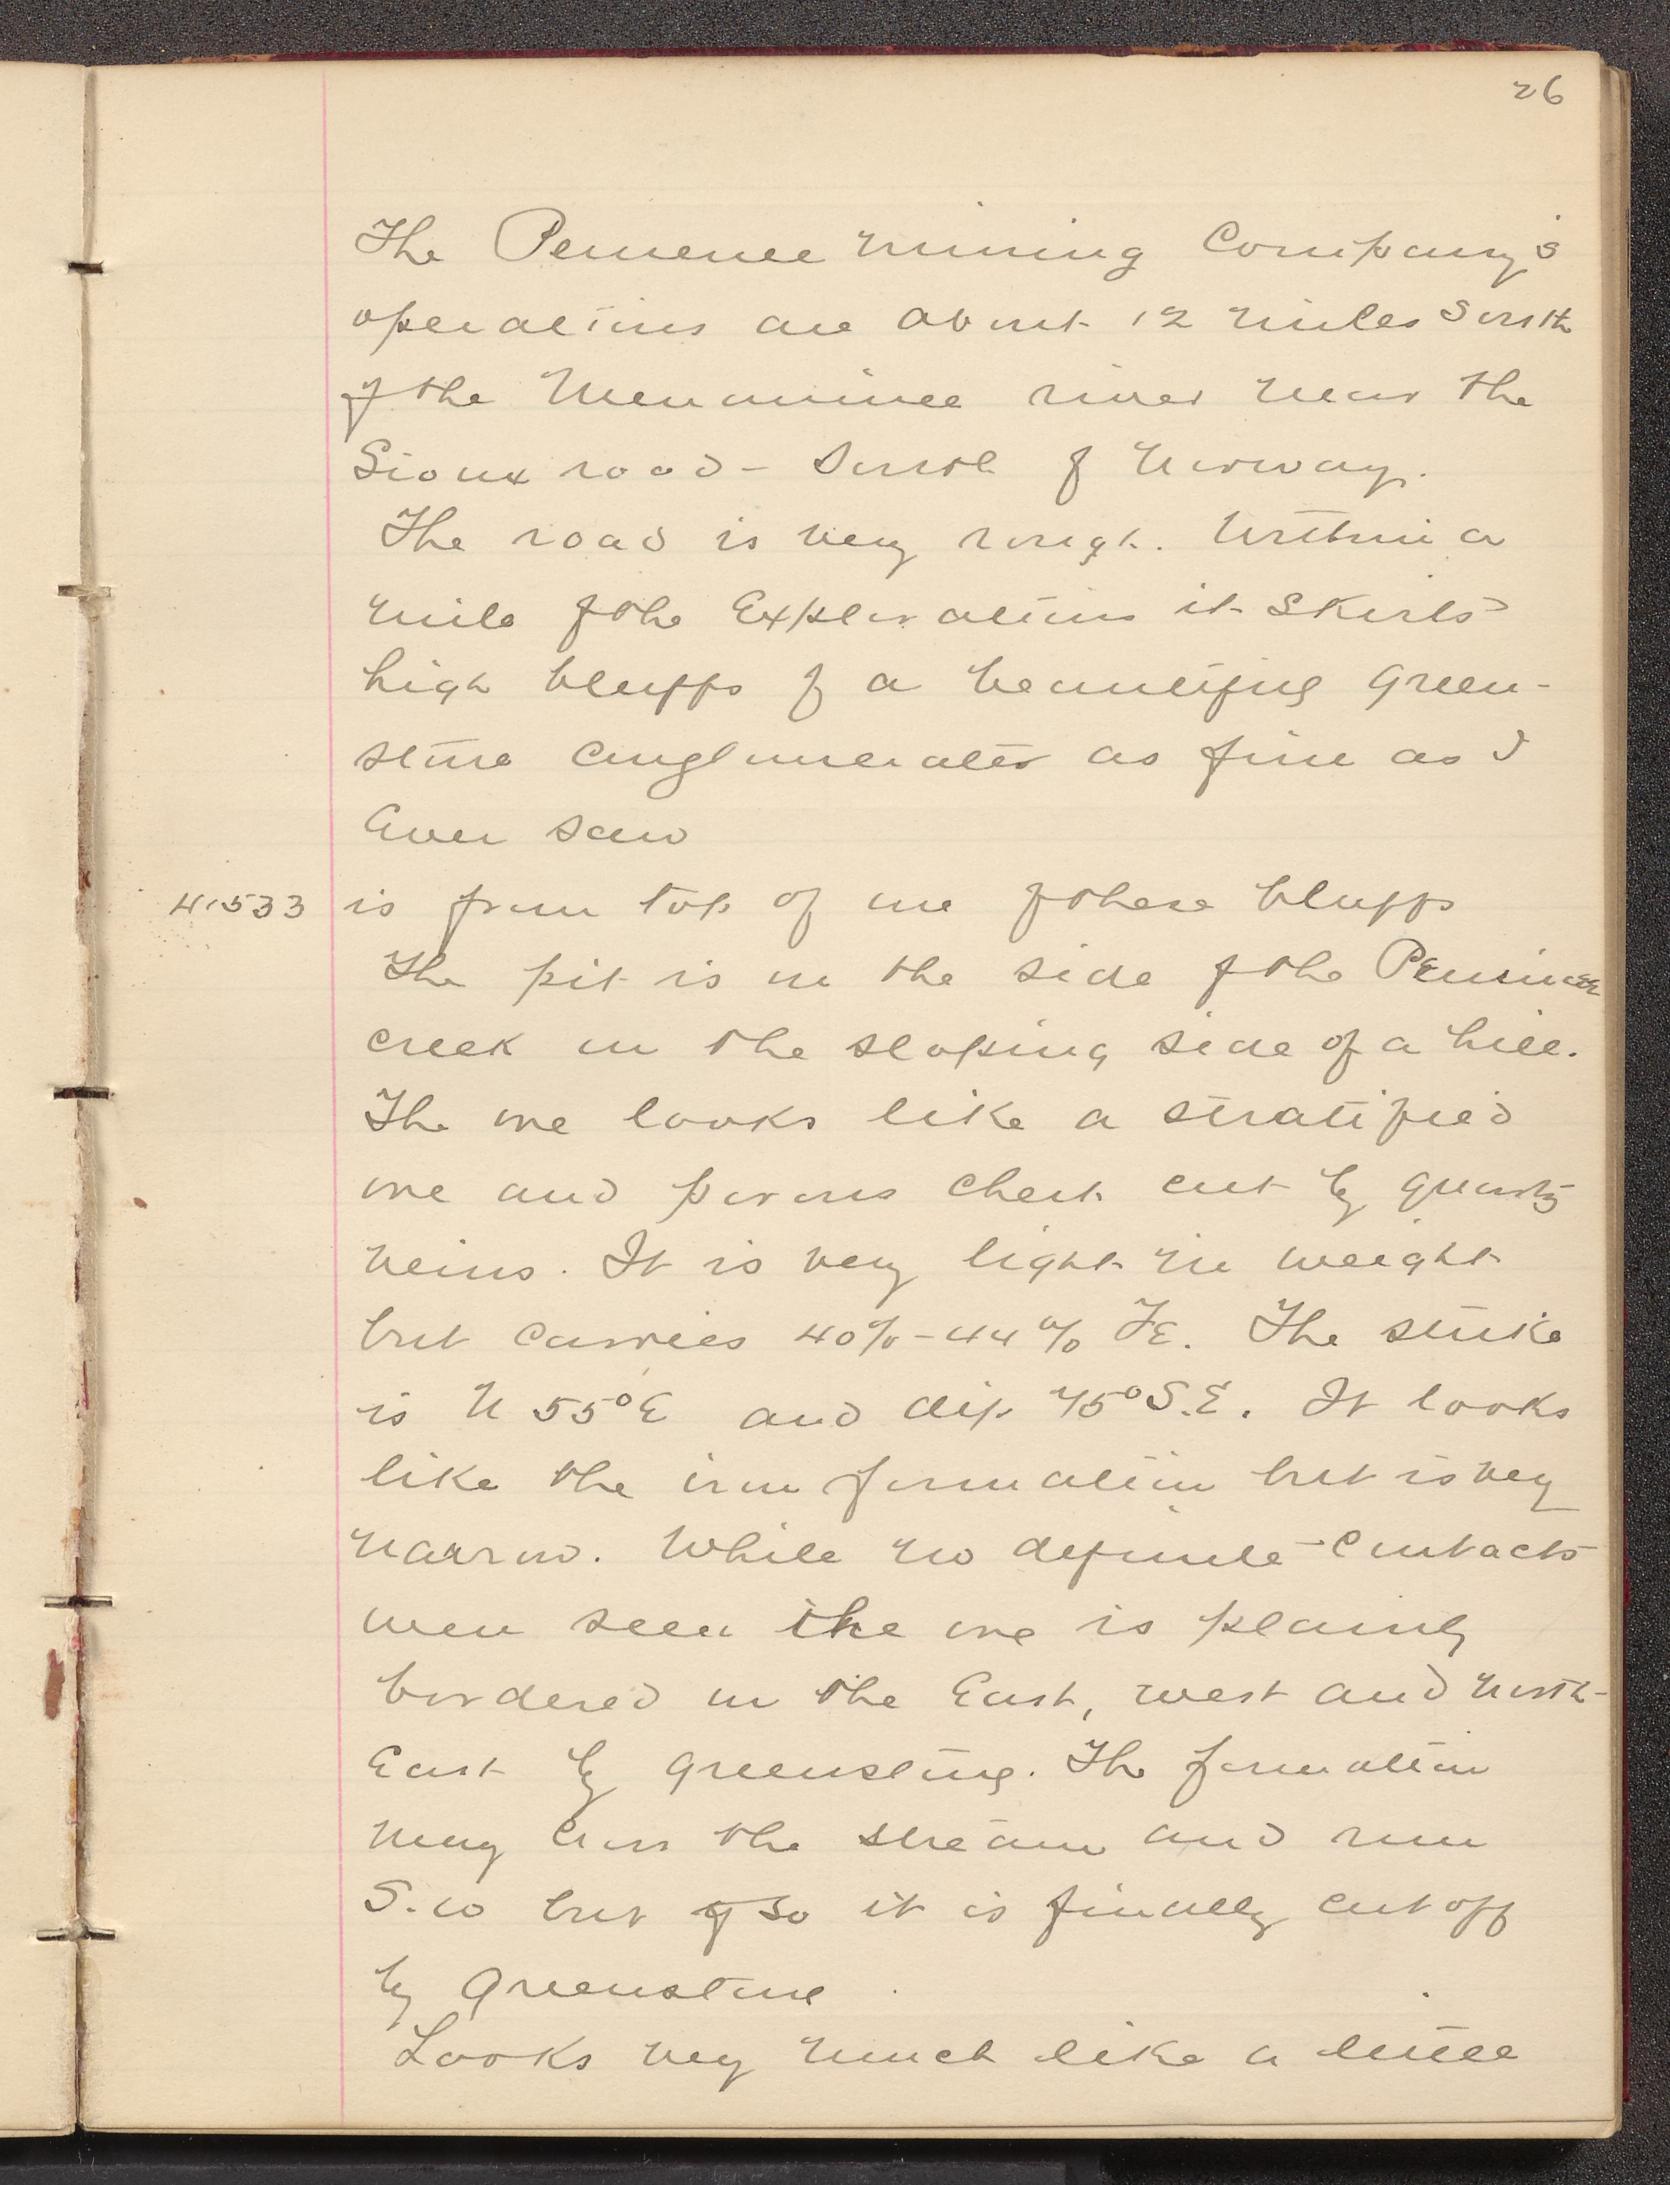 26
The Pemenee mining Company's
operations are about 12 miles South
of the Menominee river near the
Sioux road - South of Norway.
The road is very rough. Within a
mile of the Explorations it skirts
high bluffs of a beautiful green-
stone conglomerate as fine as I
Ever saw
41533 is from top of one of these bluffs
The pit is on the side of the
creek on the sloping side of a hill.
The ore looks like a stratified
ore and porous chert cut by quartz
veins. It is very light in weight
but carries 40% - 44% Fe. The strike
is N 55° E and dip 75° S.E. It looks
like the iron formation but is very
narrow. While no definite contacts
were seen the ore is plainly
bordered on the East, west and north-
East by greenstone. The formation
may cross the stream and run
S.W but if so it is finally cut off
by Greenstone
Looks very much like a little